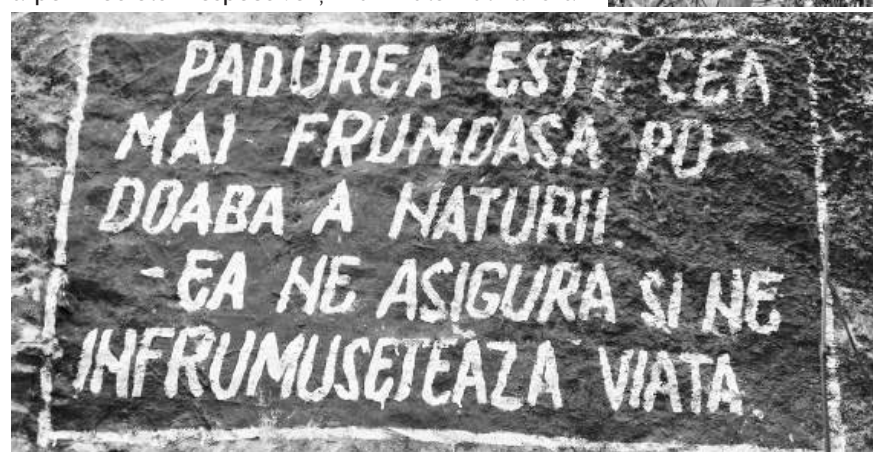 PADUREA ESTE CEA
MAI FRUMOASA PO-
DOABA A NATURII.
-EA NE ASIGURA SI NE
INFRUMUSETEAZA VIATA.